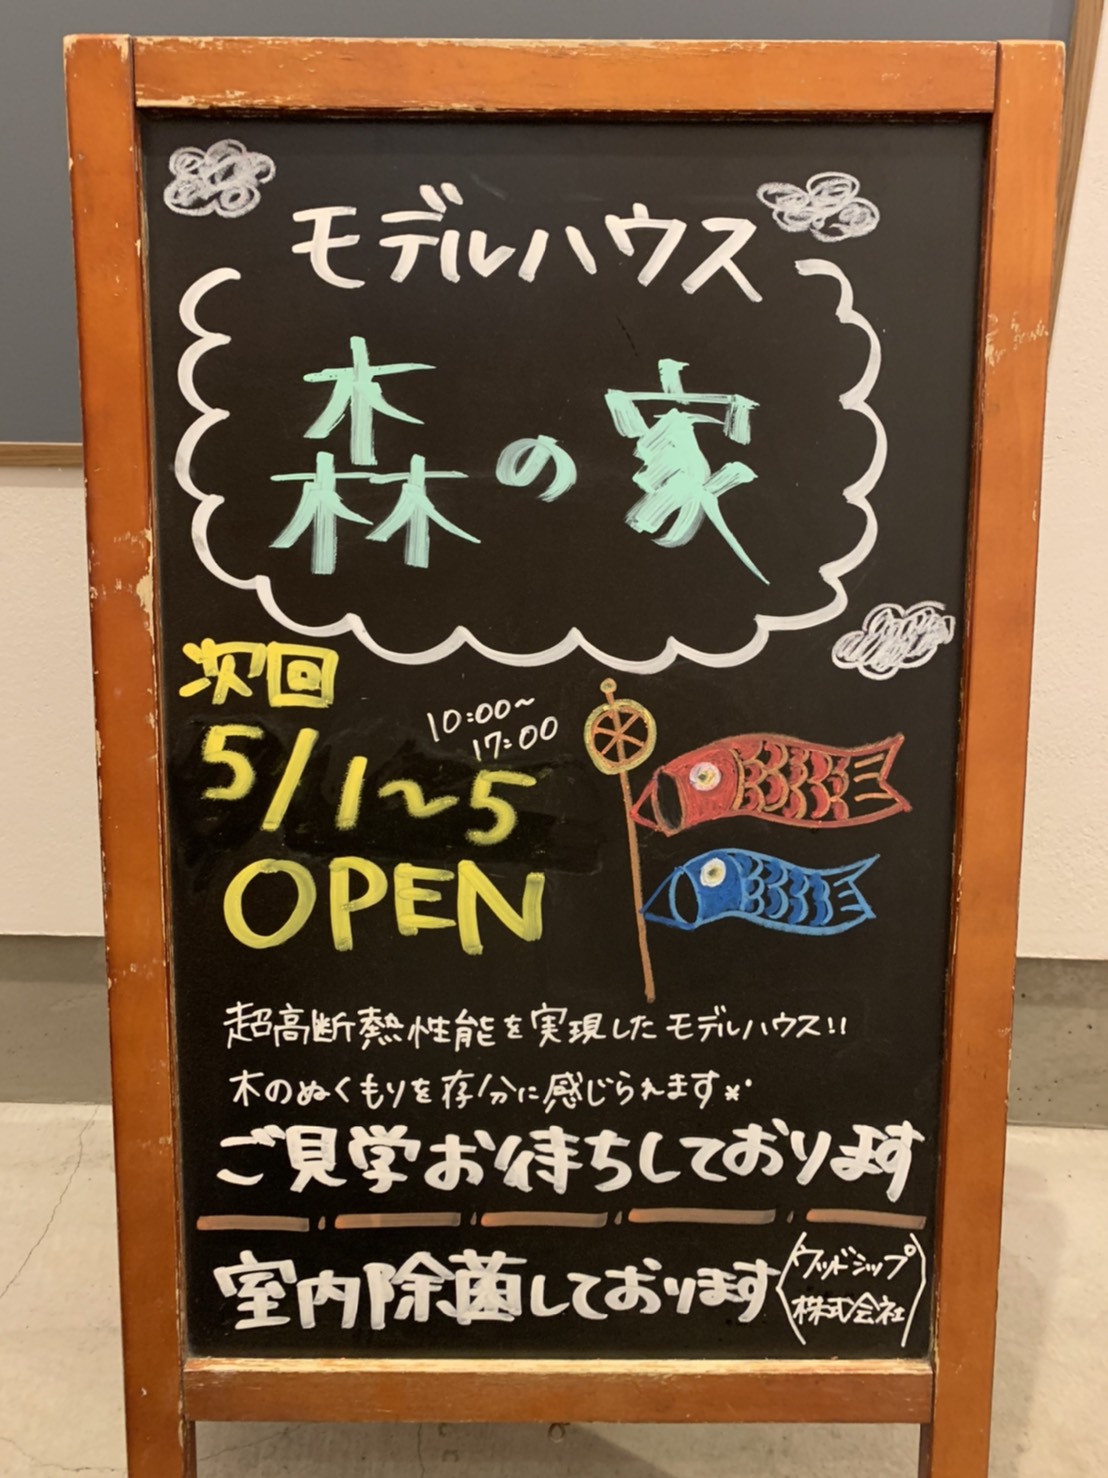 モデルハウス
森の家
次回
10:00〜
17:00
5/1〜5
OPEN
超高断熱性能を実現したモデルハウス!!
木のぬくもりを存分に感じられます
ご見学お待ちしております
室内除菌しております
ウッドシップ
株式会社